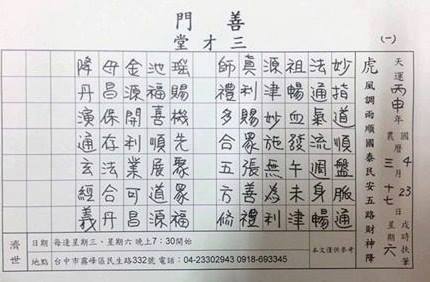 善門
三才堂
(一)
天運丙申年 國曆4月23日戌時扶筆
農曆三十七 星期六
虎風調雨順國泰民安五路財神降
妙指道順盤服通
法通氣流週身暢
祖暢血發午未津
源津妙施無為利
真利賜眾張善禮
師禮多合五方脩
瑶賜機先聚眾福
池福喜順展道源
金源開利業可昌
母昌保存法合丹
降丹演通玄經義
濟世
日期 每逢星期三、星期六 晚上7:30開始
本文僅供參考
地點 台中市霧峰區民生路332號 電話:04-23302943 0918-693345